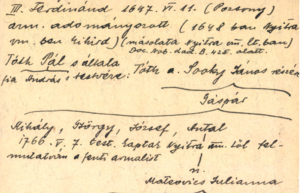 III. Ferdinánd 1647. VI. 11. (Pozsony)
arm. adományozott (1648 ban Nyitra
vm. ben kihird) (másolata Nyitra vm. lt. ban)
Tóth Pál s általa
fia András s testvére: Tóth a. Sooky János részére
Gáspár
Mihály, György, József, Antal
1766. V. 7. Gáspár Nyitra vm. től fel-
mutatván a fenti armalist
n.
Mateovics Julianna